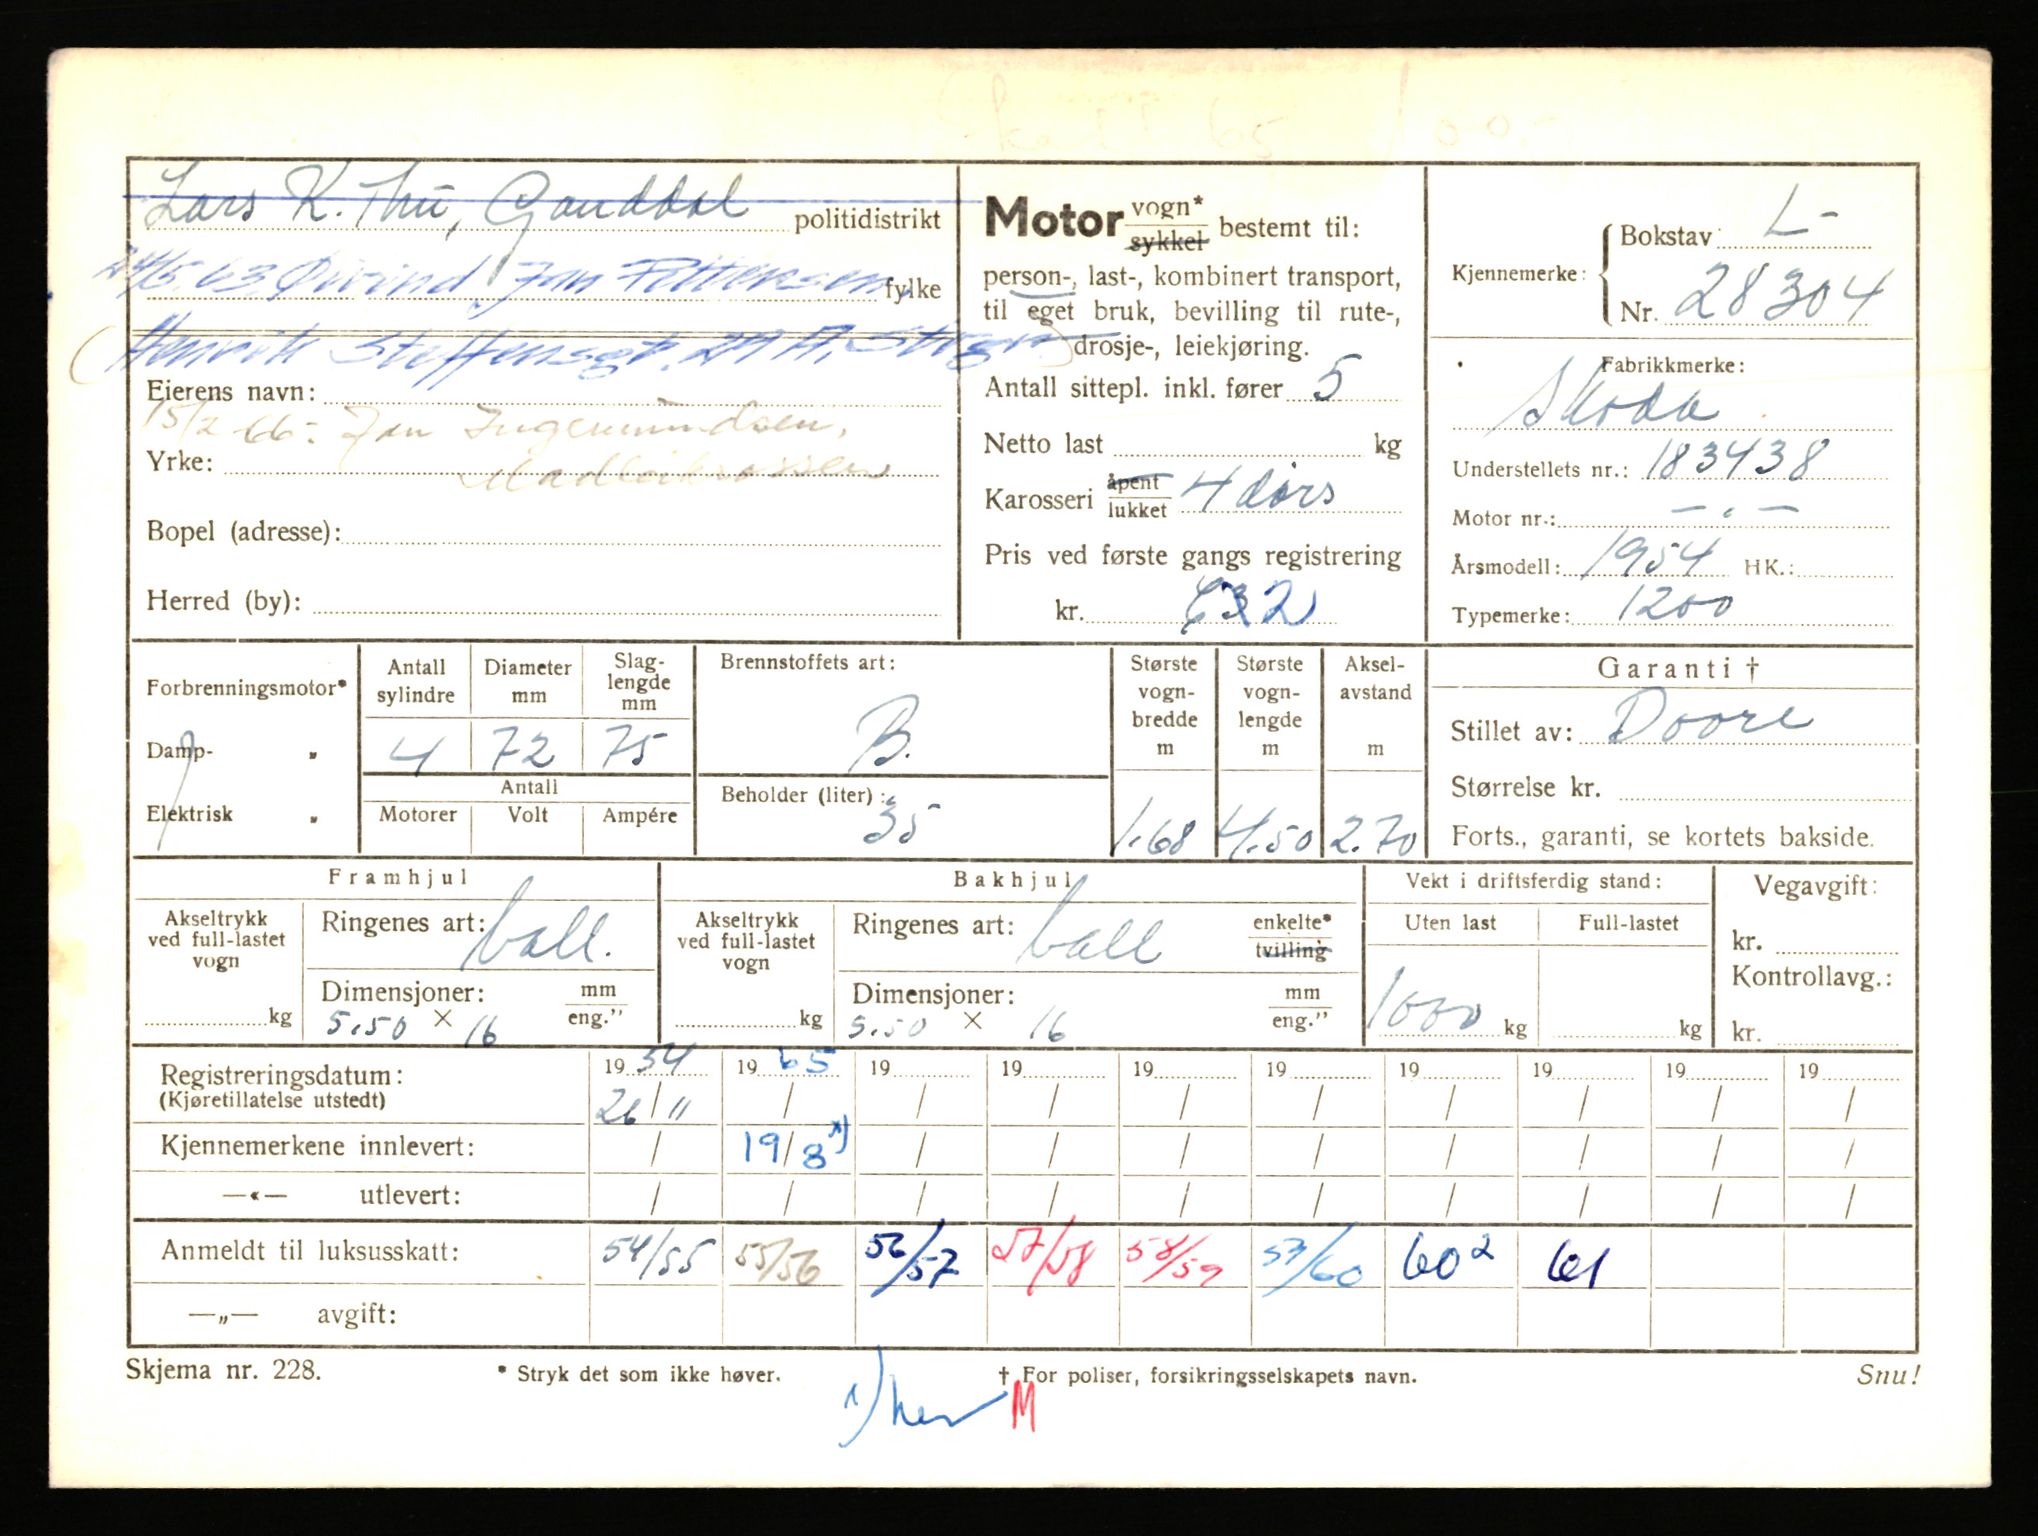 Lars K. Thu, Ganddal politidistrikt
24/5.63. Øivind Jan Pettersen, fylke
Henrik Steffensgt. 24 A, Stvgr.
Eierens navn:
15/2-66: Jan Ingemundsen,
Yrke:
Bopel (adresse):
Herred (by):
Motor vogn* / sykkel bestemt til:
person-, last-, kombinert transport,
til eget bruk, bevilling til rute-,
drosje-, leiekjøring.
Antall sittepl. inkl. fører 5
Netto last kg
Karosseri åpent / lukket 4 dørs
Pris ved første gangs registrering
kr. 632
Kjennemerke: Bokstav L-
Nr. 28304
Fabrikkmerke:
Skoda
Understellets nr.: 183438
Motor nr.: – " –
Årsmodell: 1954 HK.:
Typemerke: 1200
Forbrenningsmotor*
Damp- "
Elektrisk "
Antall sylindre Diameter mm Slag-lengde mm
4 72 75
Antall
Motorer Volt Ampére
Brennstoffets art:
B.
Beholder (liter):
35
Største vogn-bredde m Største vogn-lengde m Aksel-avstand m
1.68 4.50 2.70
Garanti †
Stillet av:
Størrelse kr.
Forts., garanti, se kortets bakside.
Framhjul
Akseltrykk ved full-lastet vogn
kg
Ringenes art: ball.
Dimensjoner: mm / eng."
5.50 × 16
Bakhjul
Akseltrykk ved full-lastet vogn
kg
Ringenes art: ball enkelte* / tvilling
Dimensjoner: mm / eng."
5.50 × 16
Vekt i driftsferdig stand:
Uten last Full-lastet
1000 kg kg
Vegavgift:
kr.
Kontrollavg.:
kr.
Registreringsdatum: 1954 1965 19 19 19 19 19 19 19 19
(Kjøretillatelse utstedt) 26/11 / / / / / / / / /
Kjennemerkene innlevert: / 19/8 x) / / / / / / / /
—«— utlevert: / / / / / / / / / /
Anmeldt til luksusskatt: 54/55 55/56 56/57 57/58 58/59 59/60 60² 61
—„— avgift:
Skjema nr. 228. * Stryk det som ikke høver. † For poliser, forsikringsselskapets navn. Snu!
M